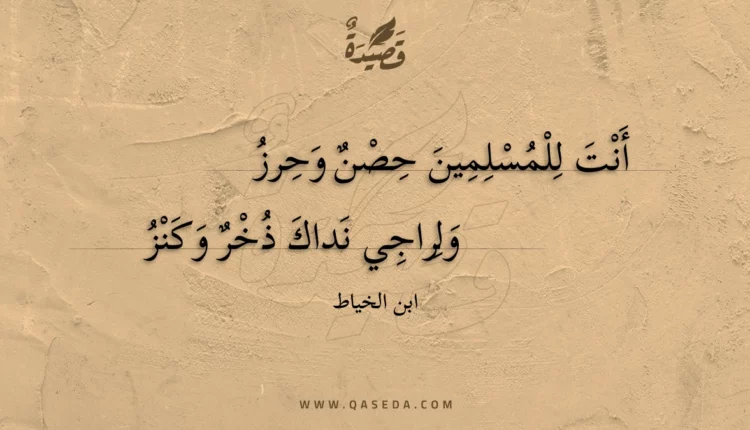 قَصِيدَةٌ
أَنْتَ لِلْمُسْلِمِينَ حِصْنٌ وَحِرزُ
وَلِراجِي نَداكَ ذُخْرٌ وَكَنْزُ
ابن الخياط
WWW.QASEDA.COM